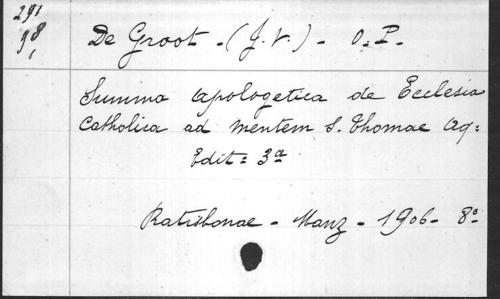 291
98
1
De Groot - (J. V.) - O. P.
Summa Apologetica de Ecclesia
Catholica ad mentem S. Thomae Aq:
Edit: 3a
Ratisbonae - Manz - 1906 - 8°